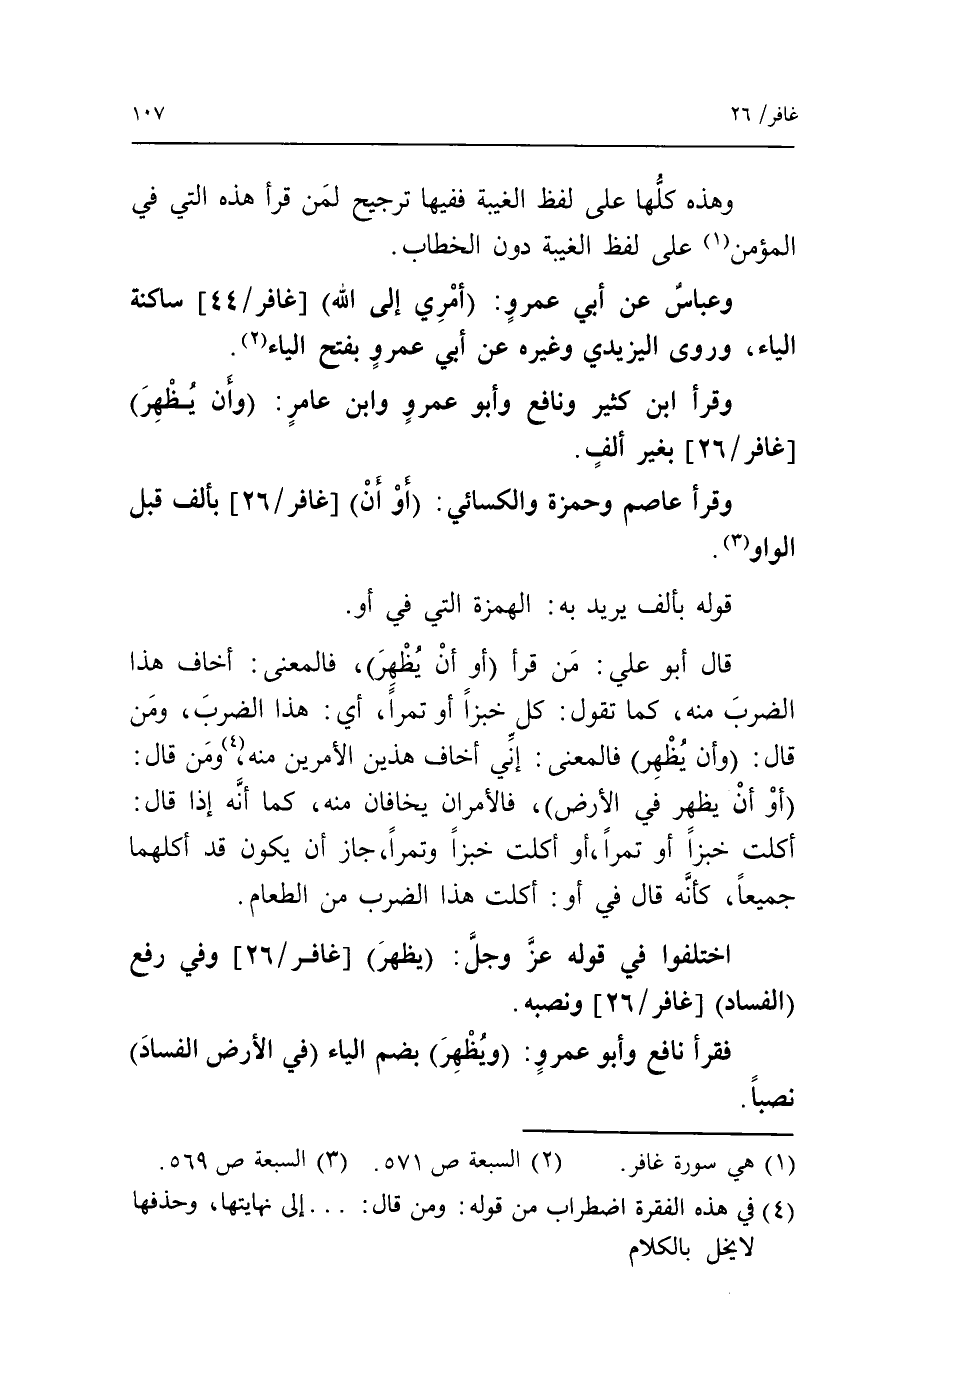 غافر/ ٢٦
١٠٧
وهذه كلُّها على لفظ الغيبة ففيها ترجيح لمَن قرأ هذه التي في
المؤمن(١) على لفظ الغيبة دون الخطاب.
وعباسٌ عن أبي عمروٍ: (أمْرِي إلى الله) [غافر/٤٤] ساكنة
الياء، وروى اليزيدي وغيره عن أبي عمروٍ بفتح الياء(٢).
وقرأ ابن كثير ونافع وأبو عمروٍ وابن عامرٍ: (وأَن يُظْهِرَ)
[غافر/٢٦] بغير ألفٍ.
وقرأ عاصم وحمزة والكسائي: (أَوْ أَنْ) [غافر/٢٦] بألف قبل
الواو(٣).
قوله بألف يريد به: الهمزة التي في أو.
قال أبو علي: مَن قرأ (أو أنْ يُظْهِرَ)، فالمعنى: أخاف هذا
الضربَ منه، كما تقول: كل خبزاً أو تمراً، أي: هذا الضربَ، ومَن
قال: (وأن يُظْهِر) فالمعنى: إنِّي أخاف هذين الأمرين منه،(٤)ومَن قال:
(أوْ أنْ يظهر في الأرض)، فالأمران يخافان منه، كما أنَّه إذا قال:
أكلت خبزاً أو تمراً،أو أكلت خبزاً وتمراً،جاز أن يكون قد أكلهما
جميعاً، كأنَّه قال في أو: أكلت هذا الضرب من الطعام.
اختلفوا في قوله عزَّ وجلَّ: (يظهرَ) [غافر/٢٦] وفي رفع
(الفساد) [غافر/٢٦] ونصبه.
فقرأ نافع وأبو عمروٍ: (ويُظْهِرَ) بضم الياء (في الأرض الفسادَ)
نصباً.
(١) هي سورة غافر. (٢) السبعة ص ٥٧١. (٣) السبعة ص ٥٦٩.
(٤) في هذه الفقرة اضطراب من قوله: ومن قال: ...إلى نهايتها، وحذفها
لايخل بالكلام